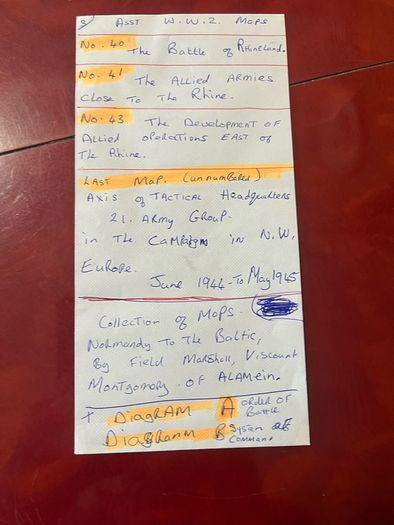 8 ASST W.W.2. MAPS
No. 40 The Battle of RHINELAND.
No. 41 The Allied Armies
Close To The Rhine.
No. 43 The Development OF
Allied operations EAST of
The Rhine.
LAST MAP. (unnumbered)
Axis of Tactical Headquarters
21. Army Group.
in The Campaign in N.W.
Europe.
June 1944 - To May 1945
Collection of Maps.
Normandy To The Baltic,
By Field Marshall, Viscount
Montgomery . OF Alamein.
+ DIAGRAM A ORDER OF
Battle
Diagramm B System OF
Command